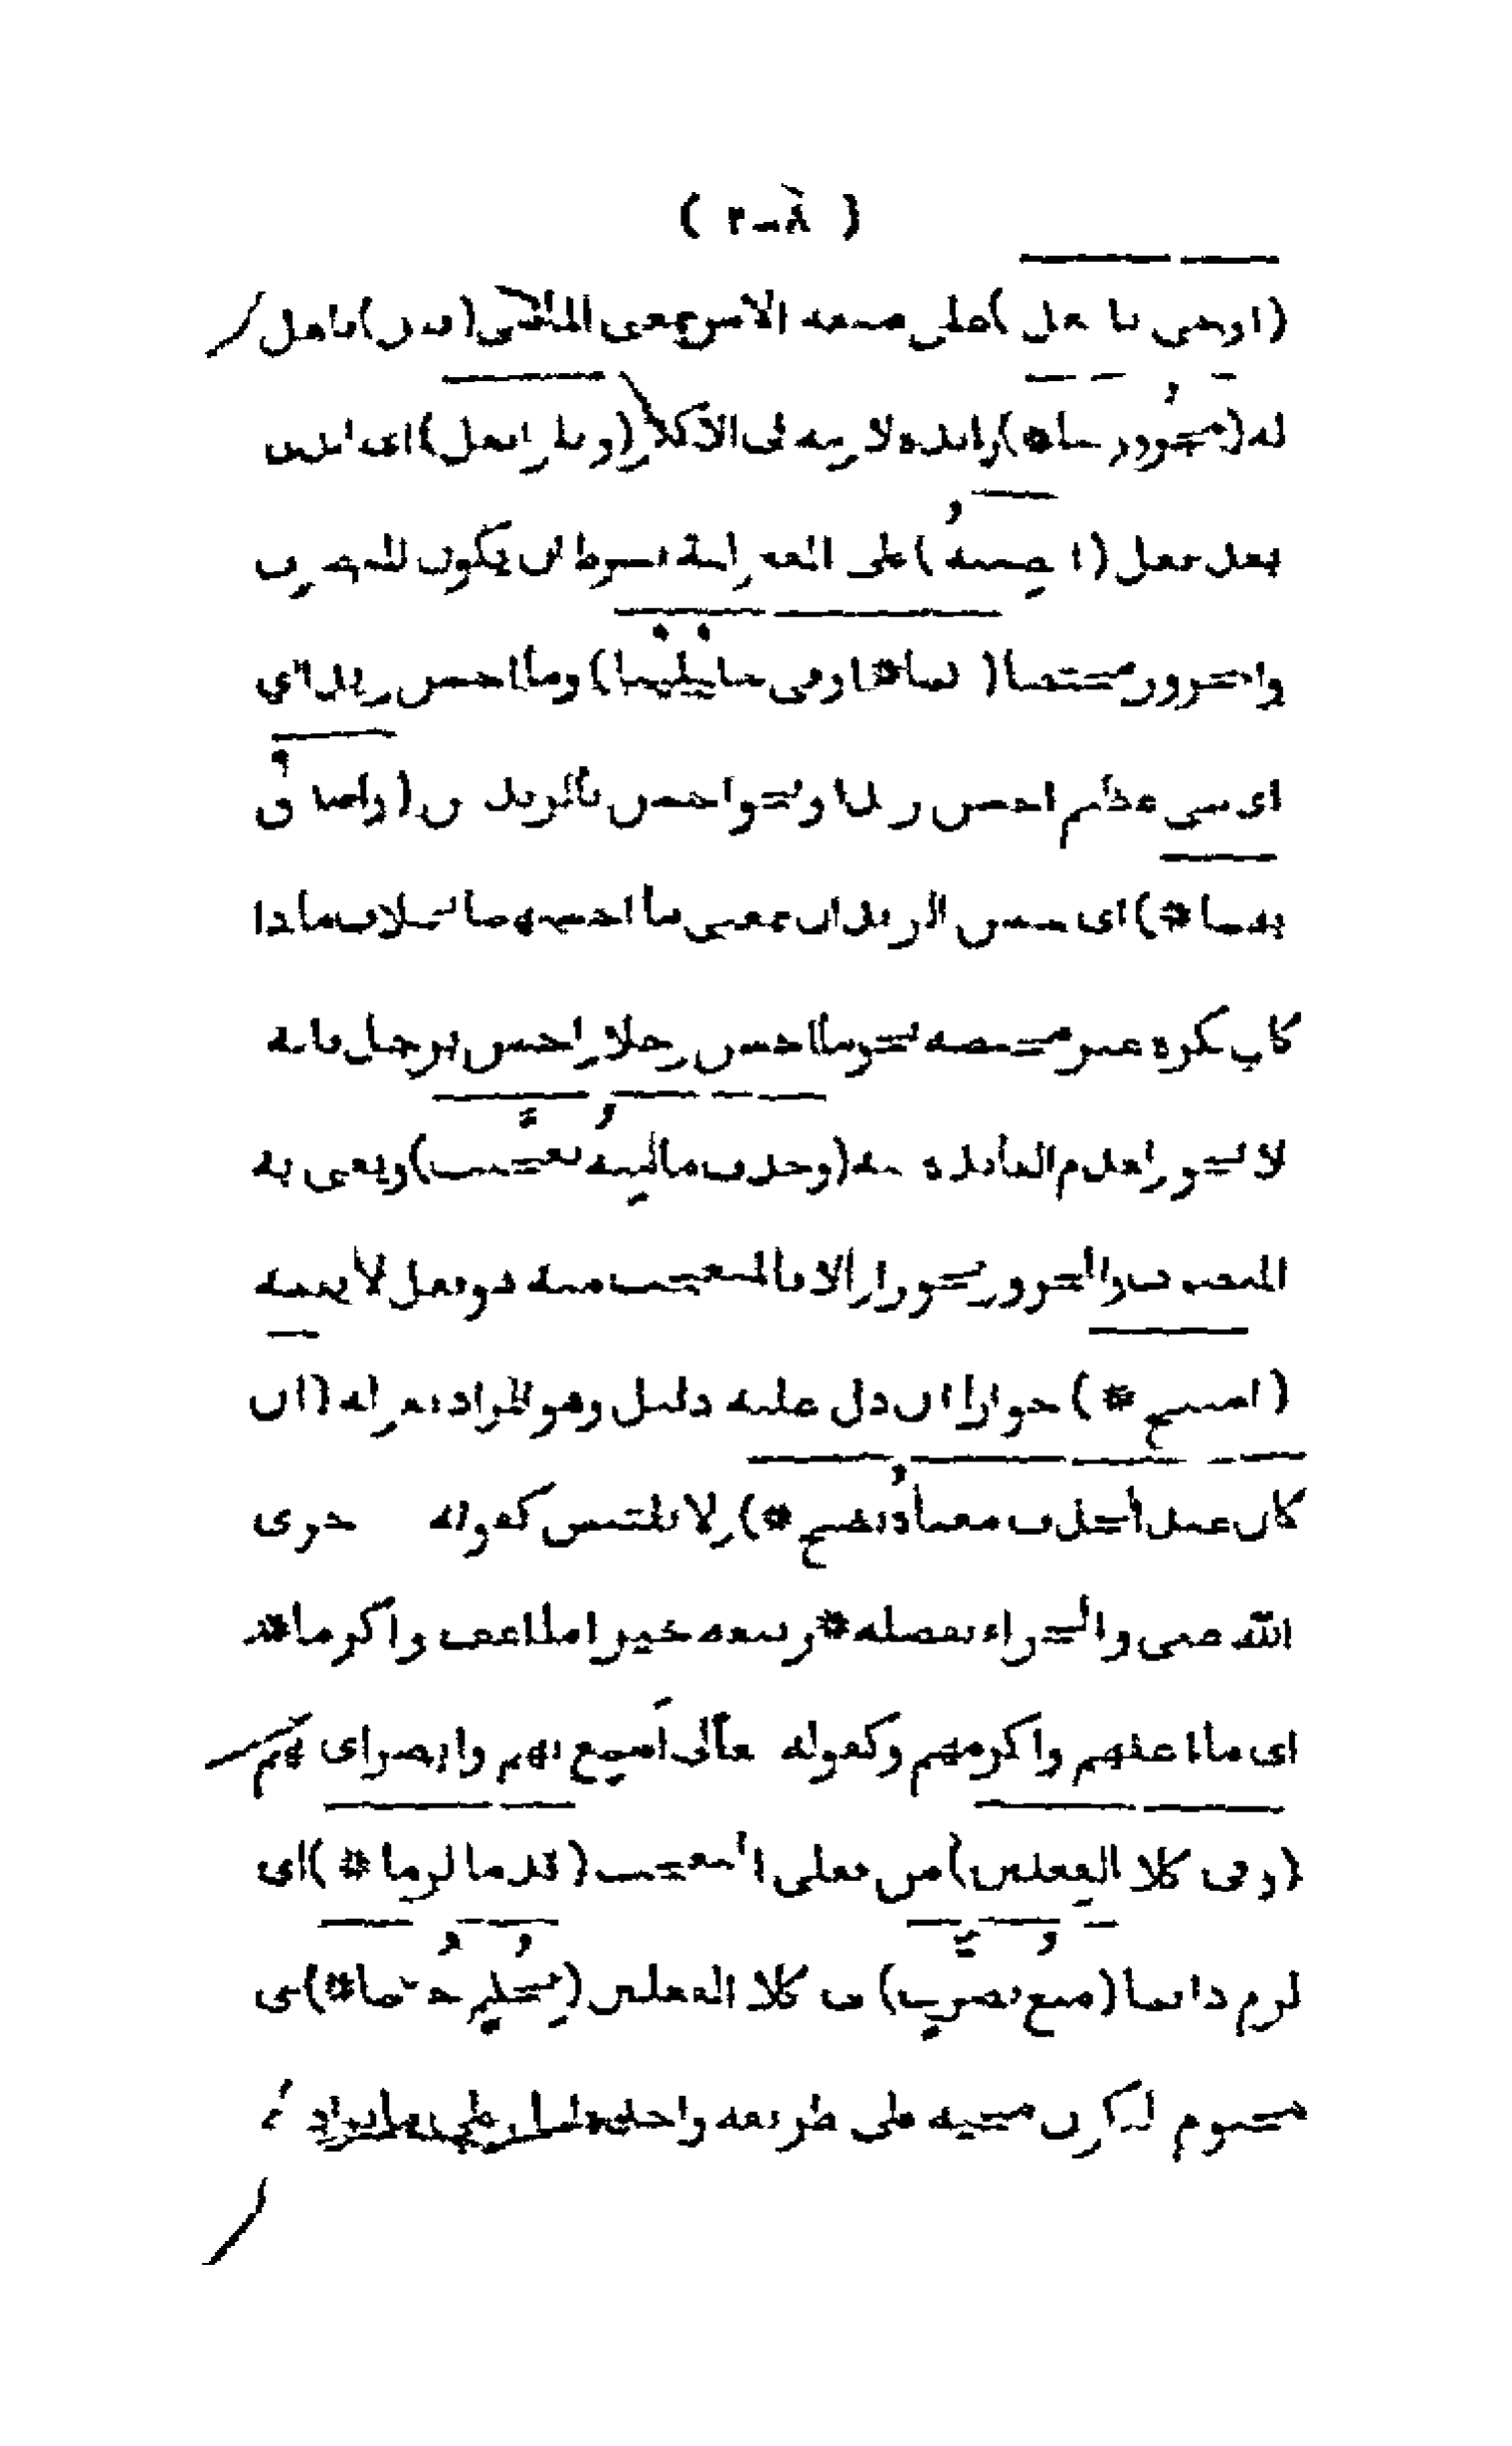 ( ٢٠٨ )
(اوجىء بافعل) على صيغه الامر بمعنى الماضى (قبل) فاعل
له (مجرور ببا *) زائده لازمه فى الاكثر (وتلو افعل) اى الذى
بعد افعل (انصبنه) على المفعوليه بشرط ان يكون المنصوب
والمجرور مختصا (كما * اوفى خليلينا) وما احسن زيدا اى
اى شىء عظيم احسن زيدا ونحو احسن بالزيدين (واصدق
بهما *) اى حسن الزيدان بمعنى ما احسنهما بخلاف ما اذا
كان نكره غير مختصه نحو ما احسن رجلا واحسن برجل فانه
لا يجوز لعدم الفائده منه (وحذف ما منه تعجبت) ويعنى به
المنصوب والمجرور تجوزا الا فالمتعجب منه هو فعل لا نفسه
(استبح *) جوازا ان دل عليه دليل وهو المراد بقوله (ان
كان عند الحذف معناه يضح *) ولا يلتبس كقوله جزى
الله عنى والجزاء بفضله * ربيعه خيرا ما اعف واكرما *
اى ما اعفهم واكرمهم وكقوله تعالى اسمع بهم وابصر اى بهم
(وفى كلا الفعلين) من فعلى التعجب (قدما لزما *) اى
لزم دائما (منع تصرف) فى كلا الفعلين (بحكم حتما *) اى
محتوم ليكون مجيه على طريقه واحده